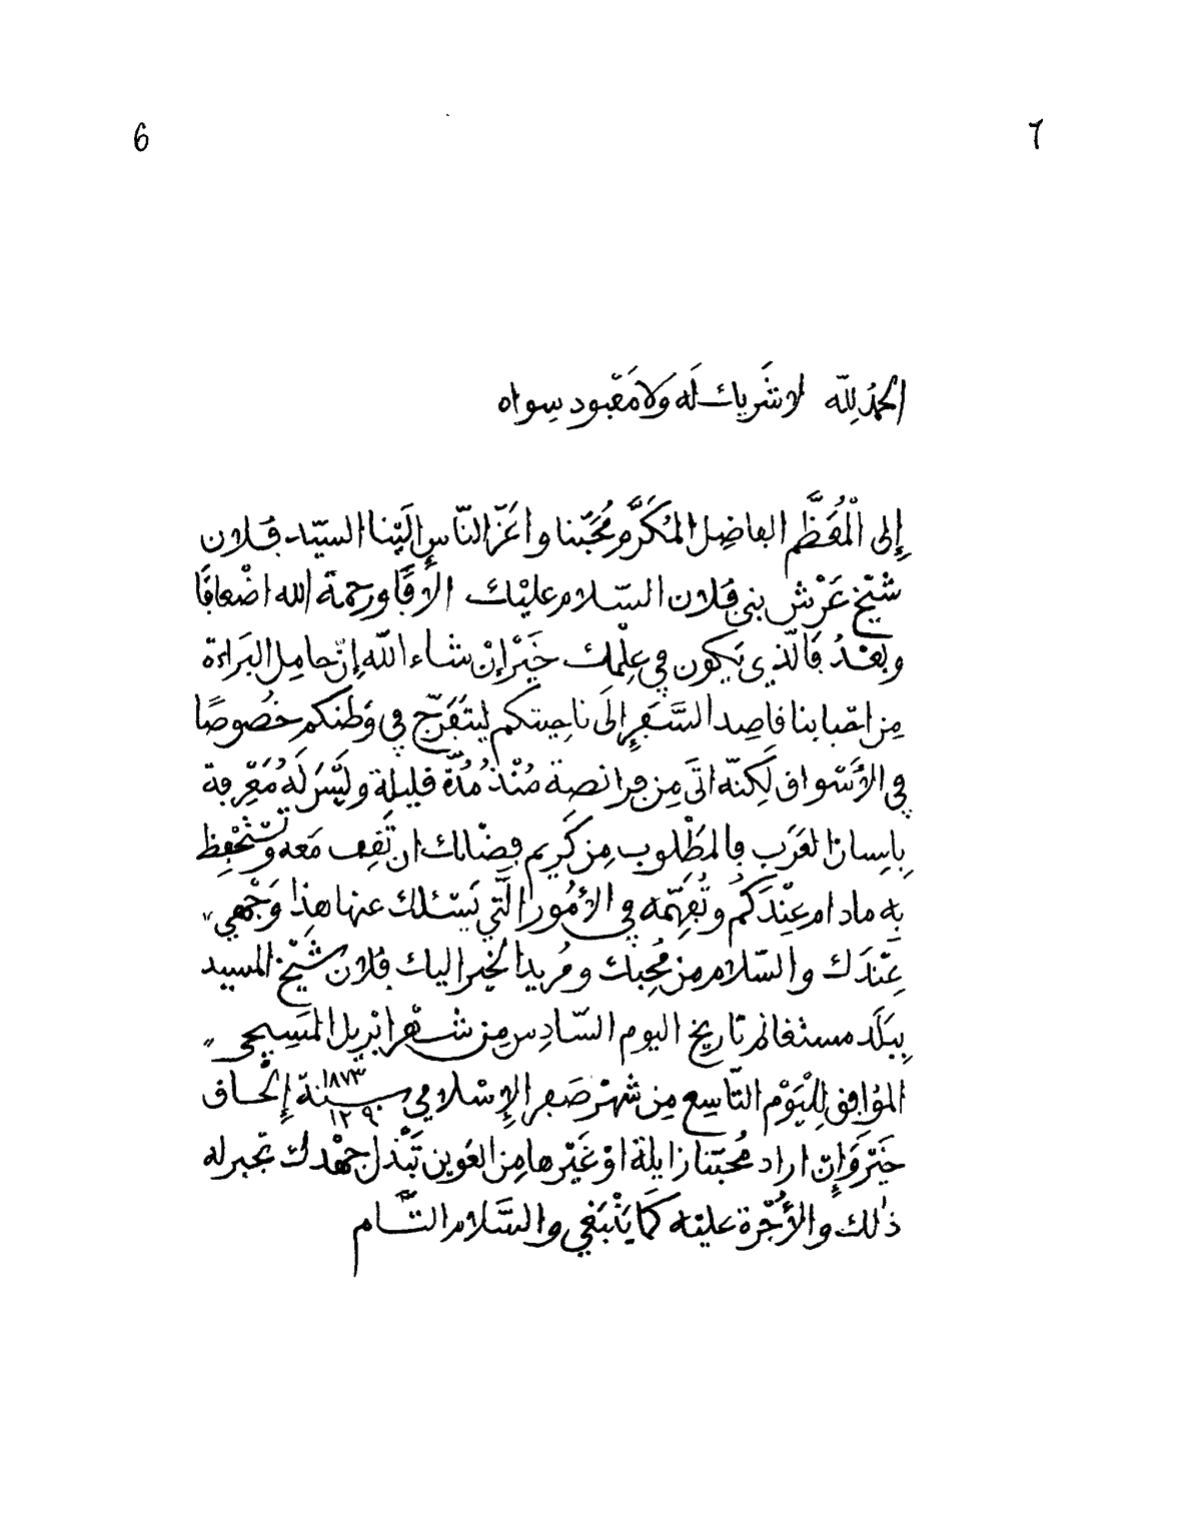 6
7
الحمدُ لِلّه لا شَريك لَه وَلا مَعْبود سِواه
إِلى الْمُعَظَّم الفاضِل المُكَرَّم مُحَبّنا واعَزّ النّاسِ إِلَيْنا السيّد فُلان
شَيْخ عَرْش بني فُلان السّلام عليْك الافًا ورحمة الله اضْعافًا
وبعْدُ فَالّذي يَكون في عِلْمك خَيَرْ إنْ شاء اللّه إِنّ حامِل البَراءة
مِن احْبابنا قاصِد السَّفَرِ إلَى ناحِيتكم لِيتَفَرّج في وَطنكم خصُوصًا
في الأَسْواق لَكِنّه اتَى مِن فرانصة مُنْذ مُدّة قليلة ولَيْسَ لَهُ مَعْرِفة
بِلِسان العَرَب فالمطْلوب مِن كَريم فِضلك ان تَقِف مَعه وتَسْتَحْفِظ
بِه مادام عِنْدَكُم وتُفهِّمه في الأمُور الَّتي يَسْئلك عنها هذا وَجْهي
عِنْدَك والسّلام من مُحِبّك ومُريد الخير اليك فلان شَيْخ المسيد
بِبَلَد مستغانم تاريخ اليوم السّادِس مِن شهْر ابْريل المَسِيحي
المؤافِق لِلْيَوْم التّاسِع مِن شهْر صَفر الإِسْلامي سنة ١٨٧٣ ١٢٩٠ إِلْحاق
خَيَرْ وَإِن اراد مُحبّنا زايلة اوْ غَيْرها مِن العَوين تَبْذل جهْدك تجبر له
ذٰلك والأُجْرة عليْه كَما يَنْبَغي والسَّلام التَّام